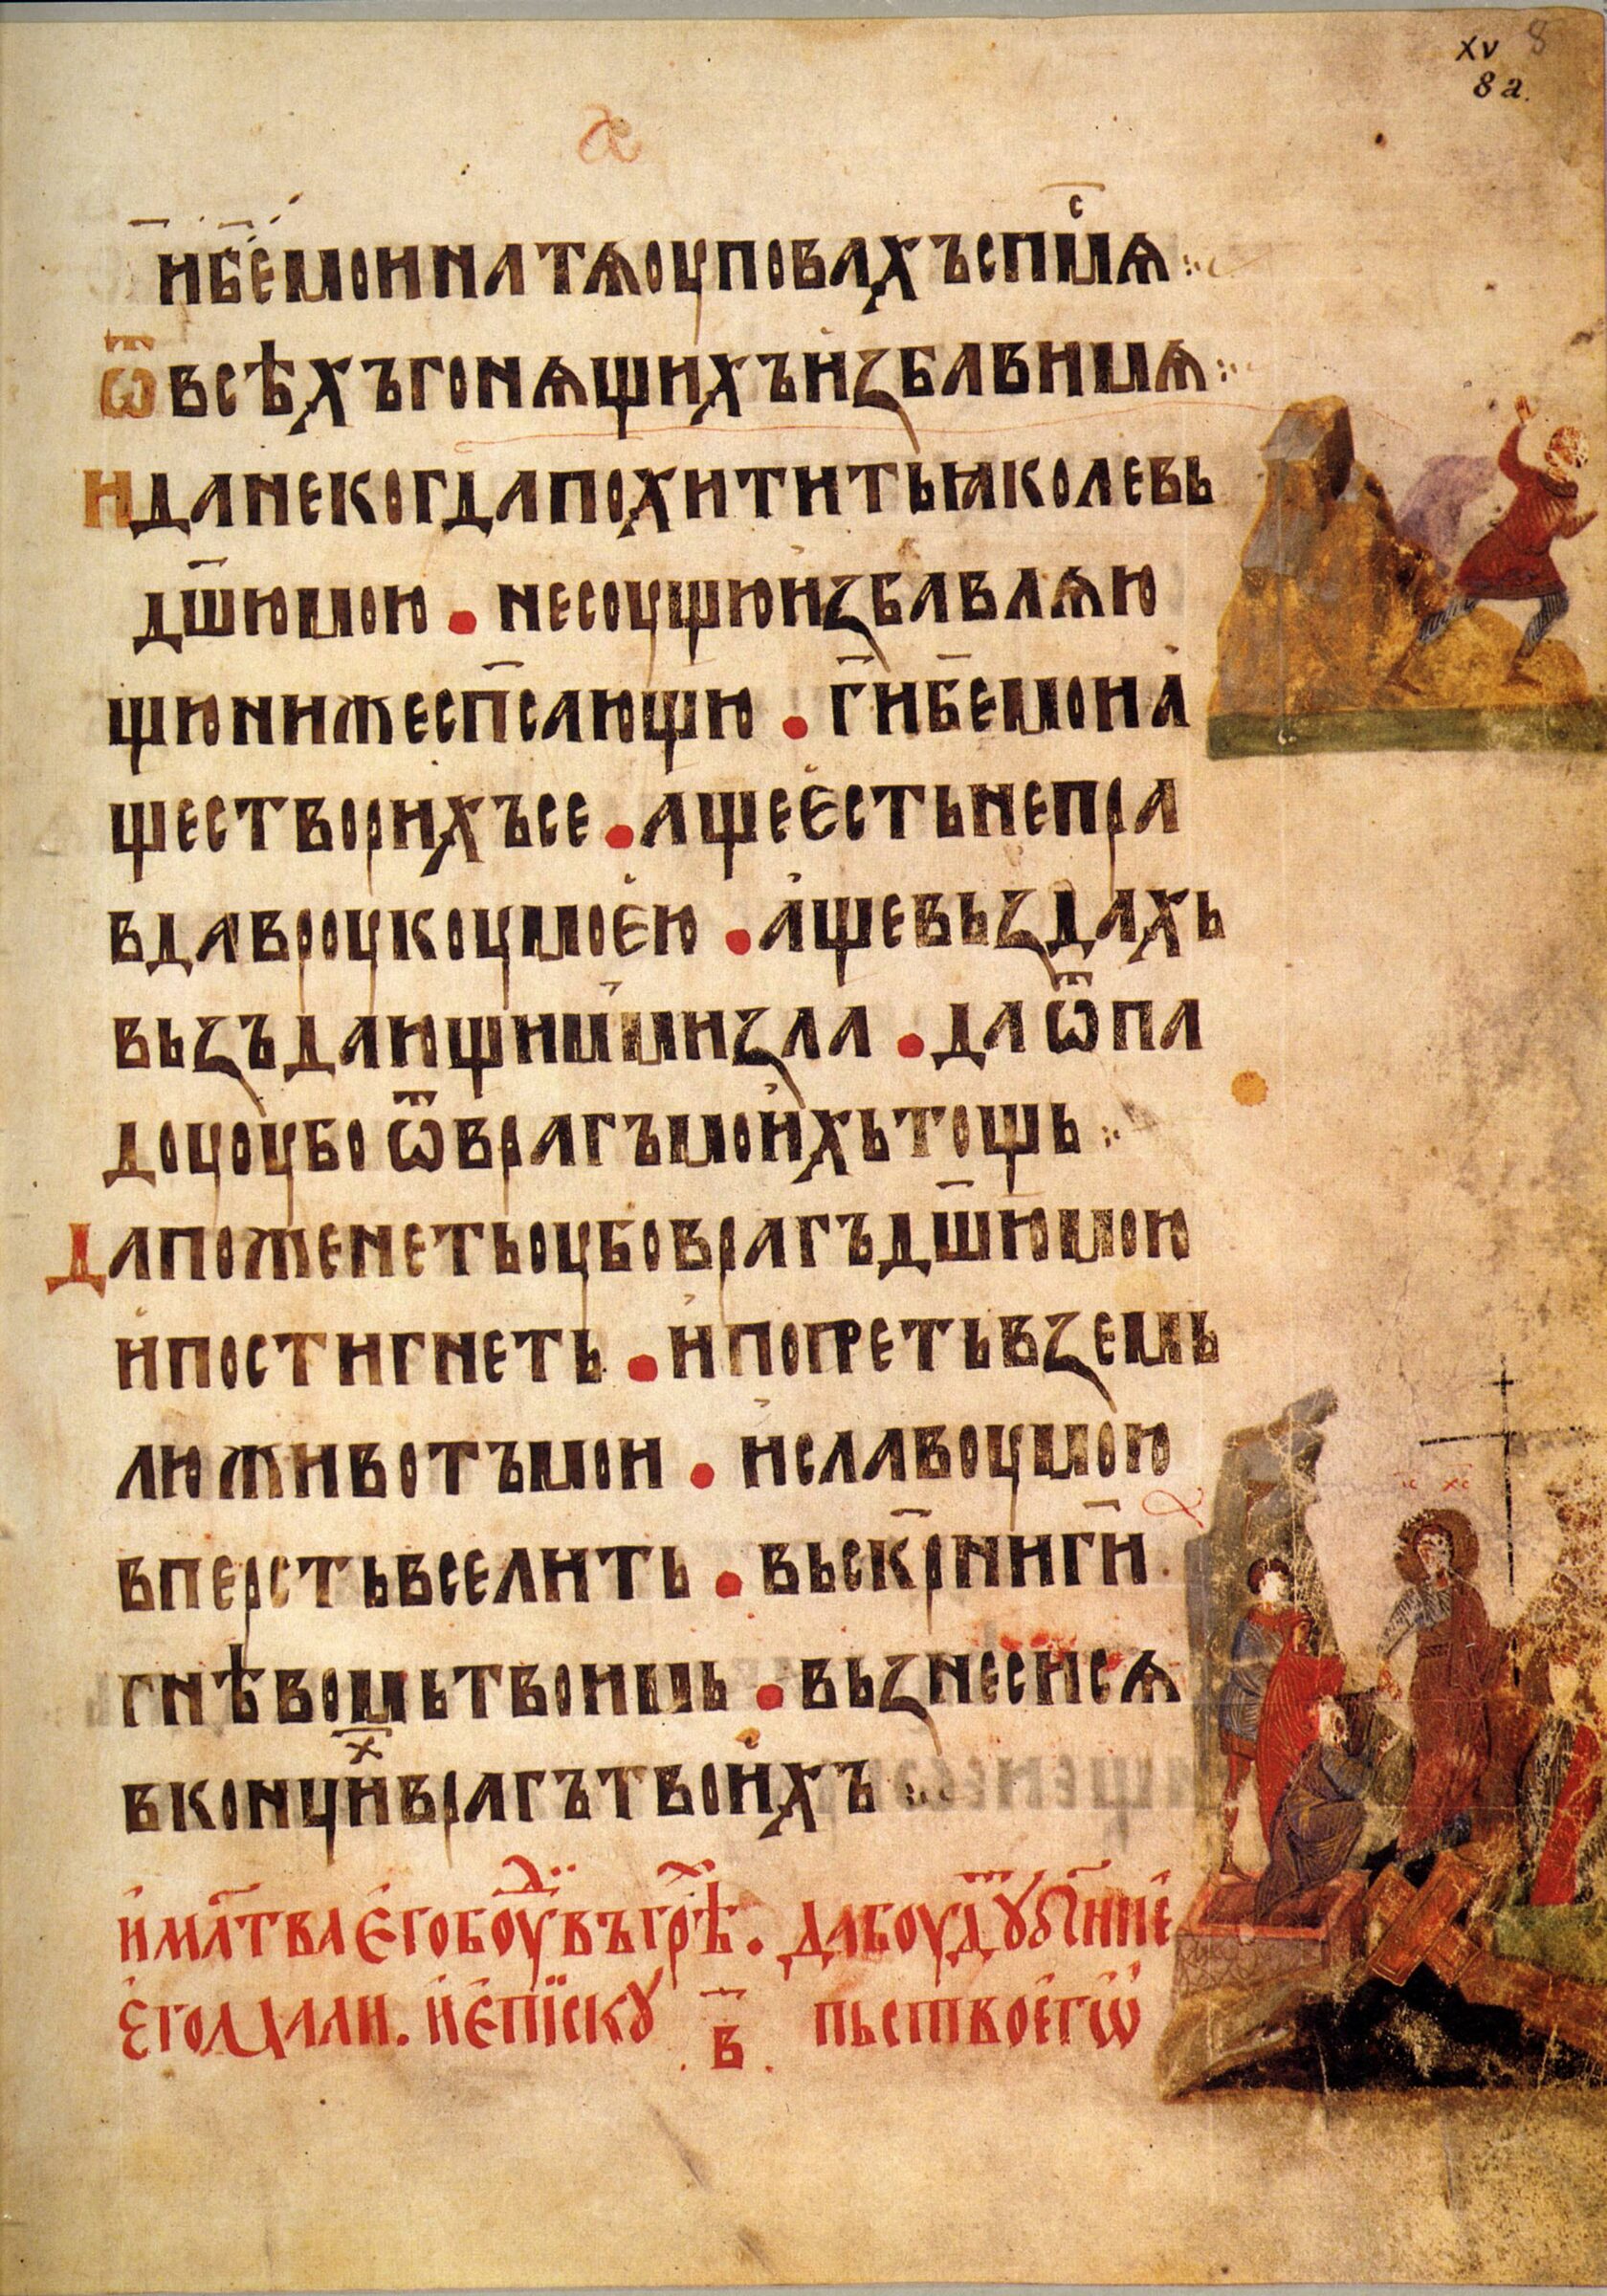 xv 8
8 a.
г҃и б҃е мои на тѧ оуповахъ сп҃с мѧ
ѿ всѣхъ гонѧщихъ и҆збави мѧ
И да не когда похитить ꙗко левъ
дш҃ю мою • не соущю и҆збавлѧю
щю ниже сп҃сающю • г҃и б҃е мои а҆
ще створихъ се • аще єсть непра
вда в роукоу моєю • а҆ще вьздахь
вьзъдающимъ ми зла • да ѿпа
доу оубо ѿ врагъ мои҆хь тощь
Да поженеть оубо врагъ дш҃ю мою
и҆ постигнеть • и҆ попреть в земь
лю животъ мои • и҆ славоу мою
в персть вселить • вьскр҃ни г҃и
гнѣвомь твоимь • вьзнесисѧ
в концих врагъ твои҆хъ
и҆ мл҃тва є҆го боуд въ грѣх. да боуд ꙋ
є҆го мали. и҆ є҆пїскꙋ пьство є҆гѡ
.в҃.